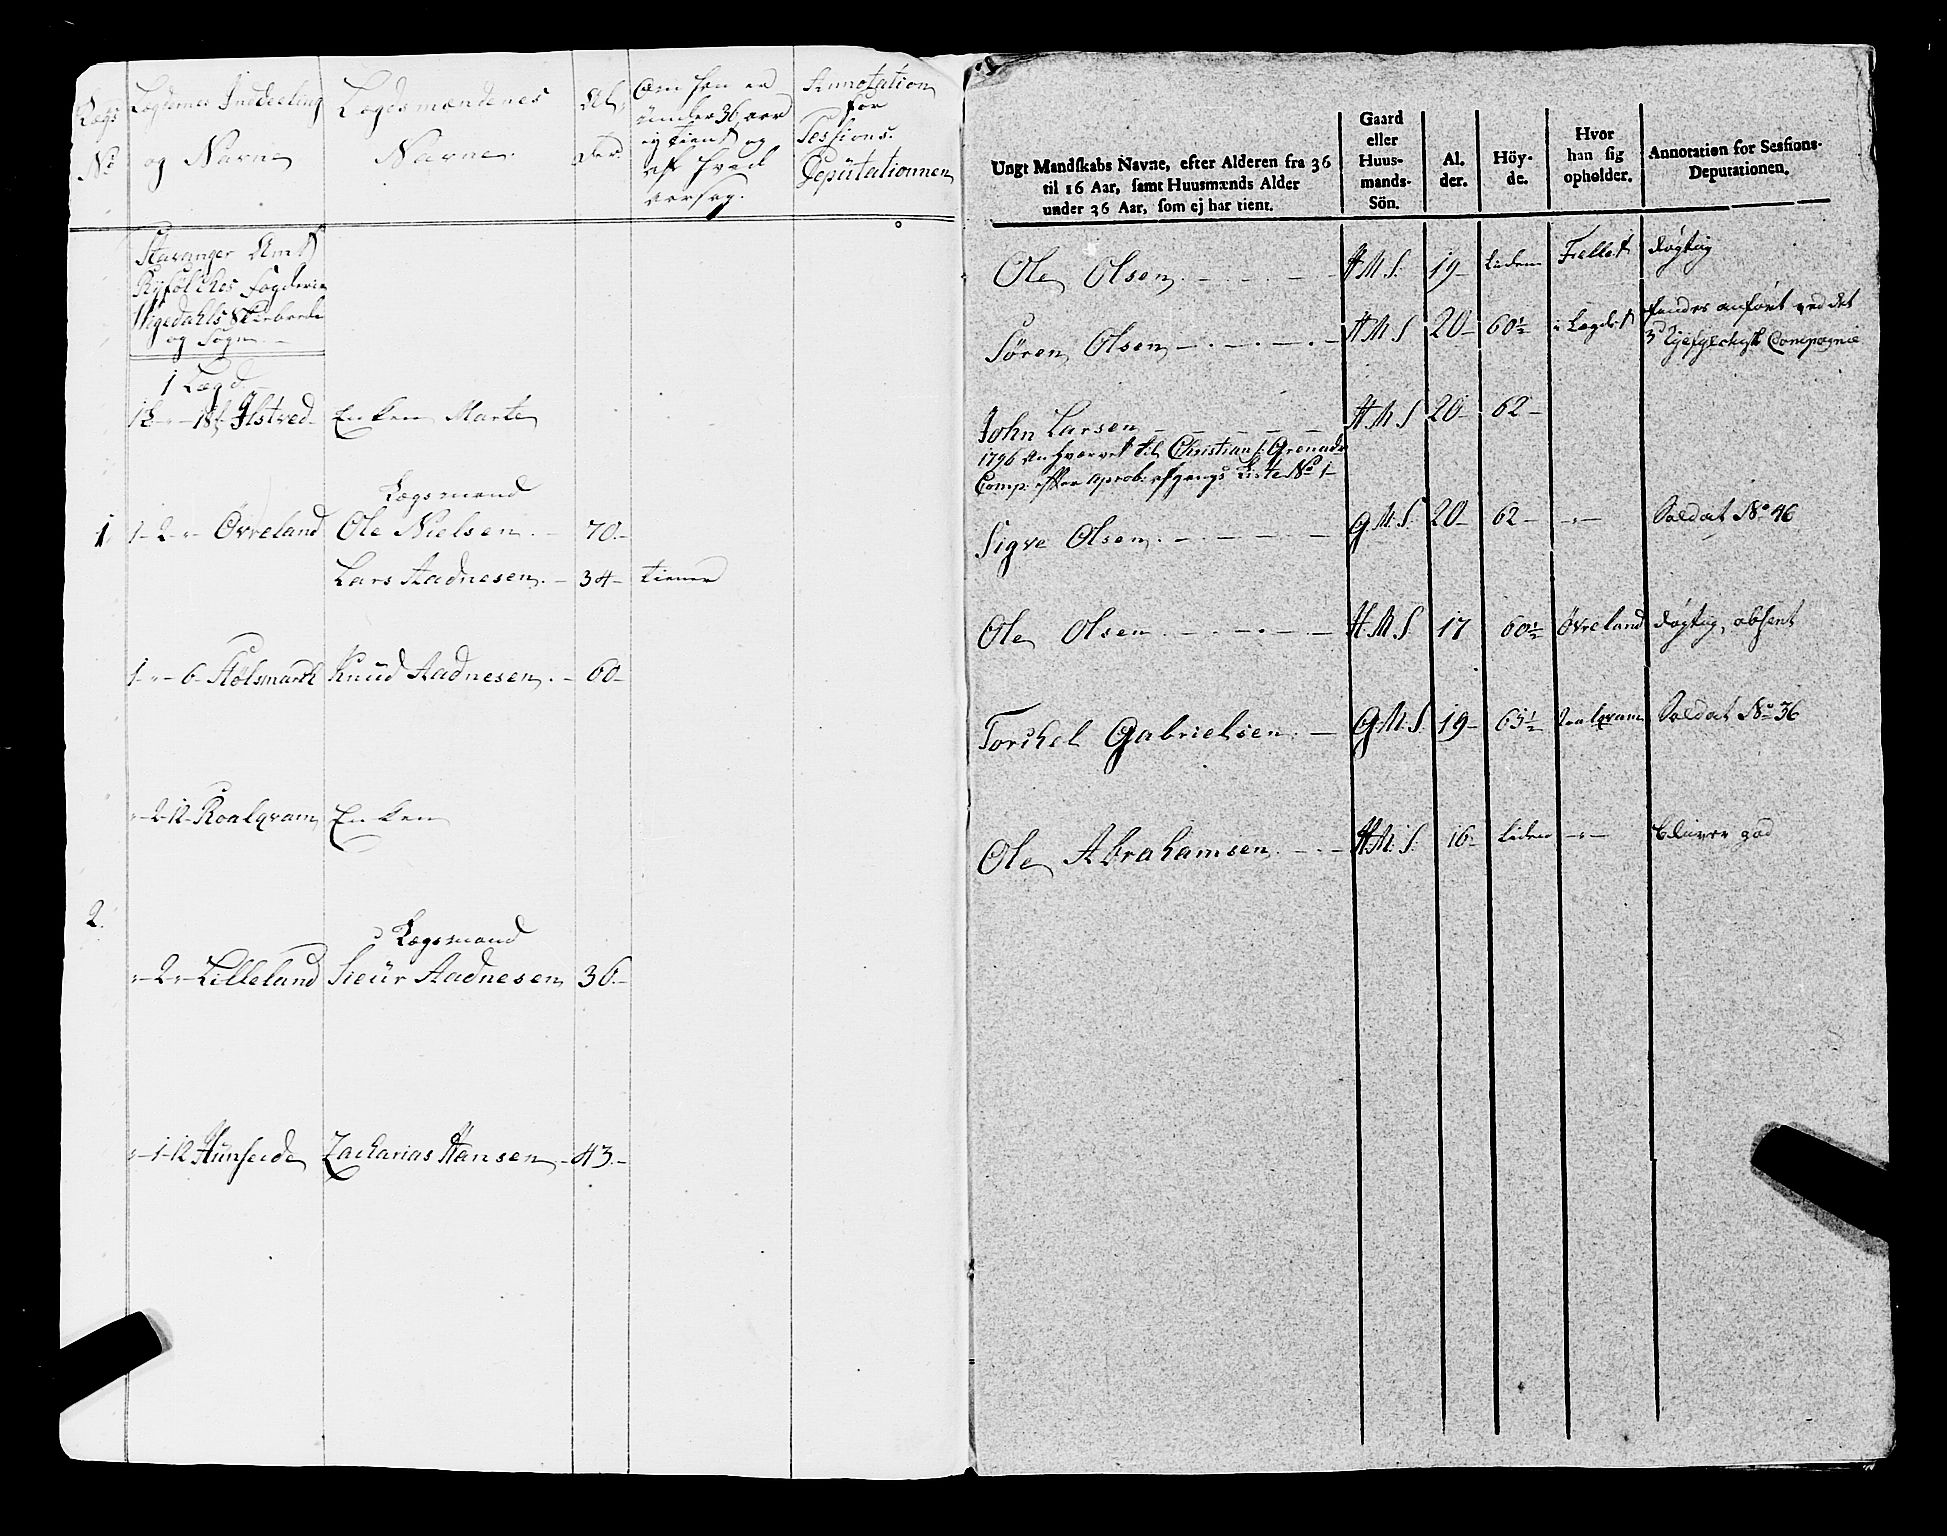 Lægs
No
Lægdernes Inddeeling
og Navne
Lægdsmændenes
Navne.
Al-
der.
Om han er
under 36 aar
ey tient og
af hvad
aarsag.
Annotation
for
Sessions.
Deputationnen
Stavanger Amt
Ryfølches Fogderie
Wigedahls Skibrede
og Sogn.
1 Lægd
Ilstved Enken Marte
Lægsmand
1 1-2-"- Øvreland Ole Nielsen. 70.-
Lars Aadnesen. - 34- tiener
1-"-6- Stølsmarch Knud Aadnesen. - 60-
"-2-12- Roalqvam Enken
2.
Lægsmand
"-2-"- Lilleland Sieur Aadnesen 36.-
"-1-12 Hunseide Zacharias Hansen - 43.-
Ungt Mandskabs Navne, efter Alderen fra 36
til 16 Aar, samt Huusmænds Alder
under 36 Aar, som ej har tient.
Gaard
eller
Huus-
mands-
Sön.
Al.
der.
Höy-
de.
Hvor
han sig
opholder.
Annotation for Sessions-
Deputationen.
Ole Olsen. H.M.S. 19- Liden døgtig
Søren Olsen H.M.S 20- 60½ i Lægdet findes anført ved det
Compagnie
John Larsen H.M.S 20- 62-
1796 anhværvet til Christians: Grenader
Comp: efter aprob: afgangs Liste No 1-
Sigve Olsen. G.M.S. 20- 62- -"- Soldat No 46
Ole Olsen H.M.S 17 60½ Øvreland døgtig, absent
Torchel Gabrielsen. G.M.S. 19- 63½ Roalqvam Soldat No 36
Ole Abrahamsen. H.M.S. 16- Liden -"- bliver god